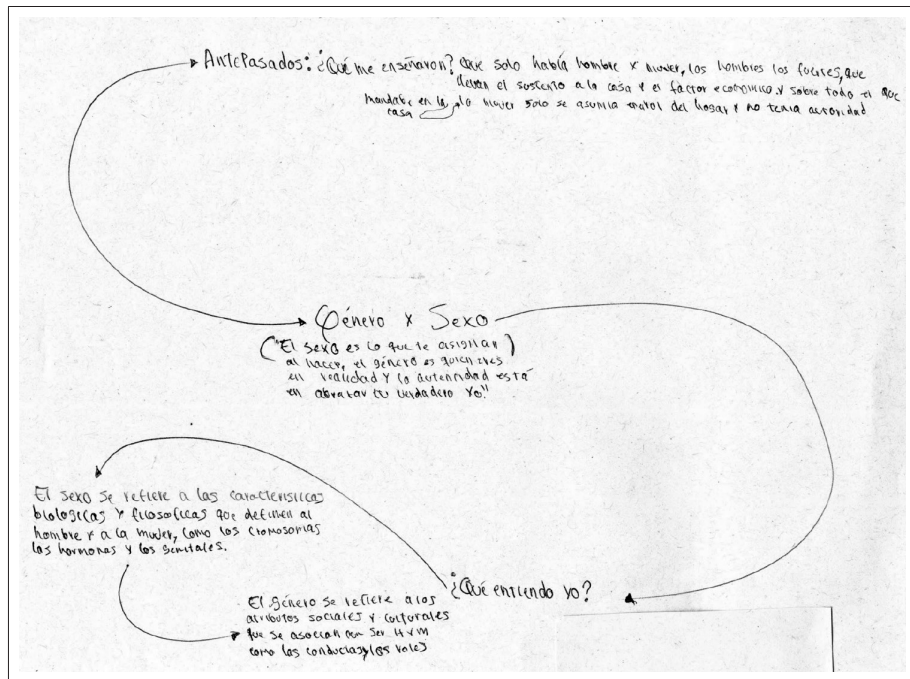 Antepasados: ¿Qué me enseñaron? Que solo había hombre y mujer, los hombres los fuertes, que
deban el sustento a la casa y el factor economico y sobre todo el que
mandaba en la casa, la mujer solo se asumia rol del hogar y no tenia autoridad
Género y Sexo
("El sexo es lo que te asignan)
al nacer, el género es quien eres
en realidad y la autenticidad está
en abrazar tu verdadero yo."
El sexo se refiere a las características
biologicas y filosoficas que definen al
hombre y a la mujer, como los cromosomas
las hormonas y los genitales.
¿Qué entiendo yo?
El género se refiere a los
atributos sociales y culturales
que se asocian con ser H y M
como las conductas y los roles